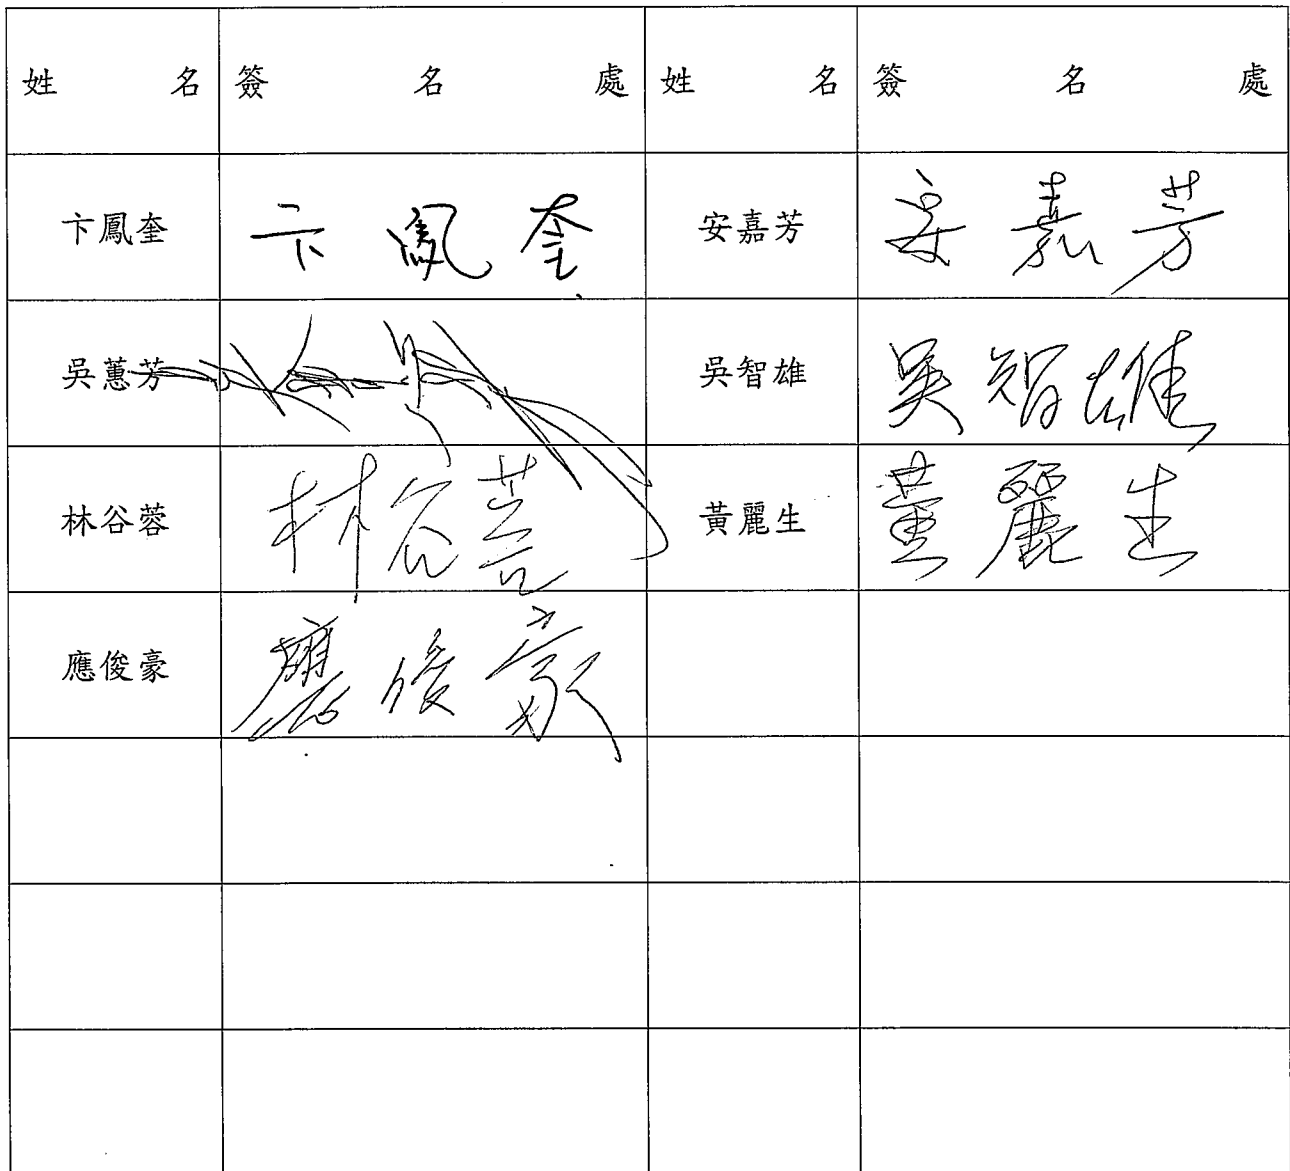 姓名 簽名處 姓名 簽名處
卞鳳奎 卞鳳奎 安嘉芳 安嘉芳
吳蕙芳 吳智雄 吳智雄
林谷蓉 林谷蓉 黃麗生 黃麗生
應俊豪 應俊豪